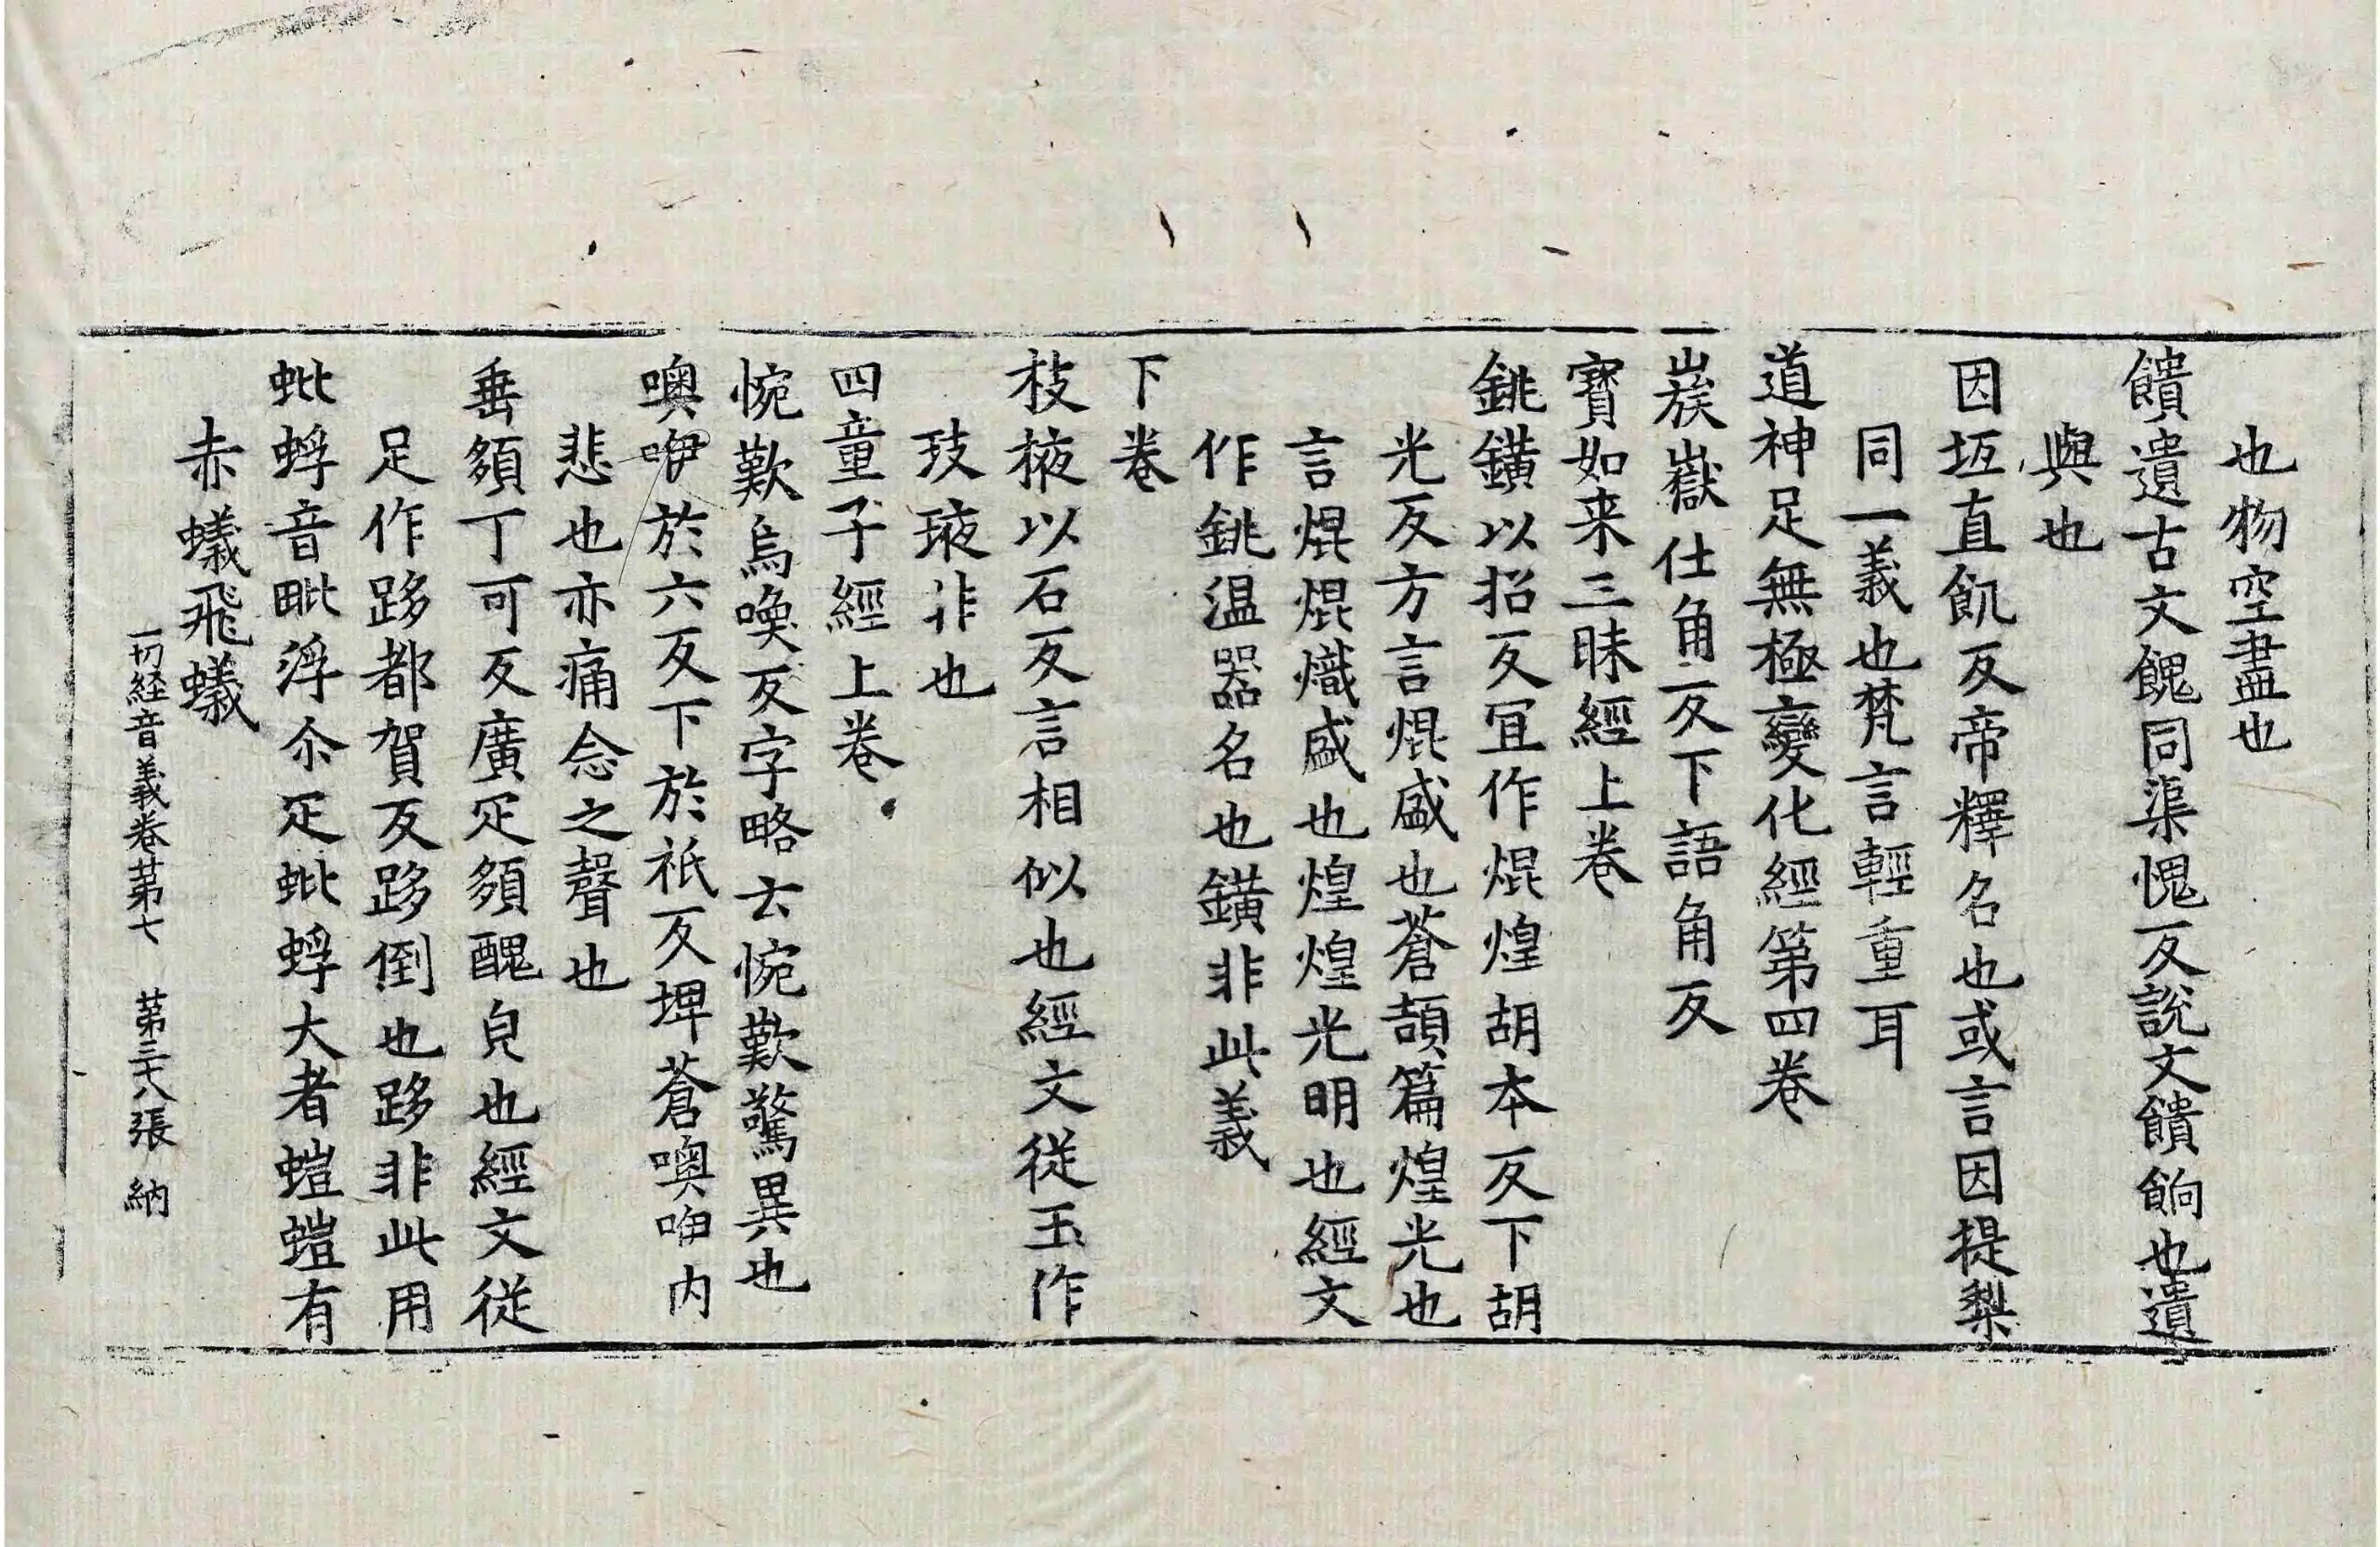 也物空盡也
饋遺古文餽同渠愧反說文饋餉也遺
與也
因坘直飢反帝釋名也或言因提梨
同一義也梵言輕重耳
道神足無極變化經第四卷
嶪嶽仕角反下語角反
寶如来三昧經上卷
銚鐄以招反冝作焜煌胡本反下胡
光反方言焜盛也蒼頡篇煌光也
言焜焜熾盛也煌煌光明也經文
作銚温器名也鐄非此義
下卷
枝掖以石反言相似也經文従玉作
玹㻞非也
四童子經上卷
惋歎烏喚反字略云惋歎驚異也
噢咿於六反下於祇反埤蒼噢咿内
悲也亦痛念之聲也
垂䫂丁可反廣疋䫂醜皃也經文従
足作跢都賀反跢倒也跢非此用
蚍蜉音毗浮尒疋蚍蜉大者螘螘有
赤蟻飛蟻
一切経音義卷苐七　苐三十八張　納